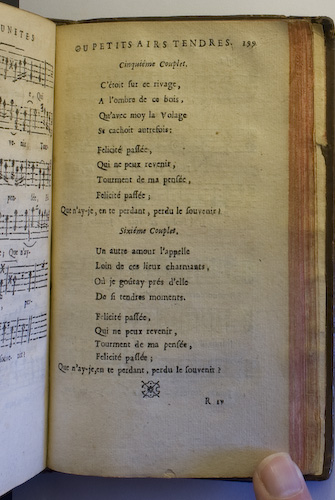 UNITES
OU PETITS AIRS TENDRES. 199
Cinquiéme Couplet.
C'étoit sur ce rivage,
A l'ombre de ce bois,
Qu'avec moy la Volage
Se cachoit autrefois:
Felicité passée,
Qui ne peux revenir,
Tourment de ma pensée,
Felicité passée;
Que n'ay-je, en te perdant, perdu le souvenir?
Sixiéme Couplet.
Un autre amour l'appelle
Loin de ces lieux charmants,
Où je goûtay prés d'elle
De si tendres moments.
Felicité passée,
Qui ne peux revenir,
Tourment de ma pensée,
Felicité passée;
Que n'ay-je, en te perdant, perdu le souvenir?
R iv